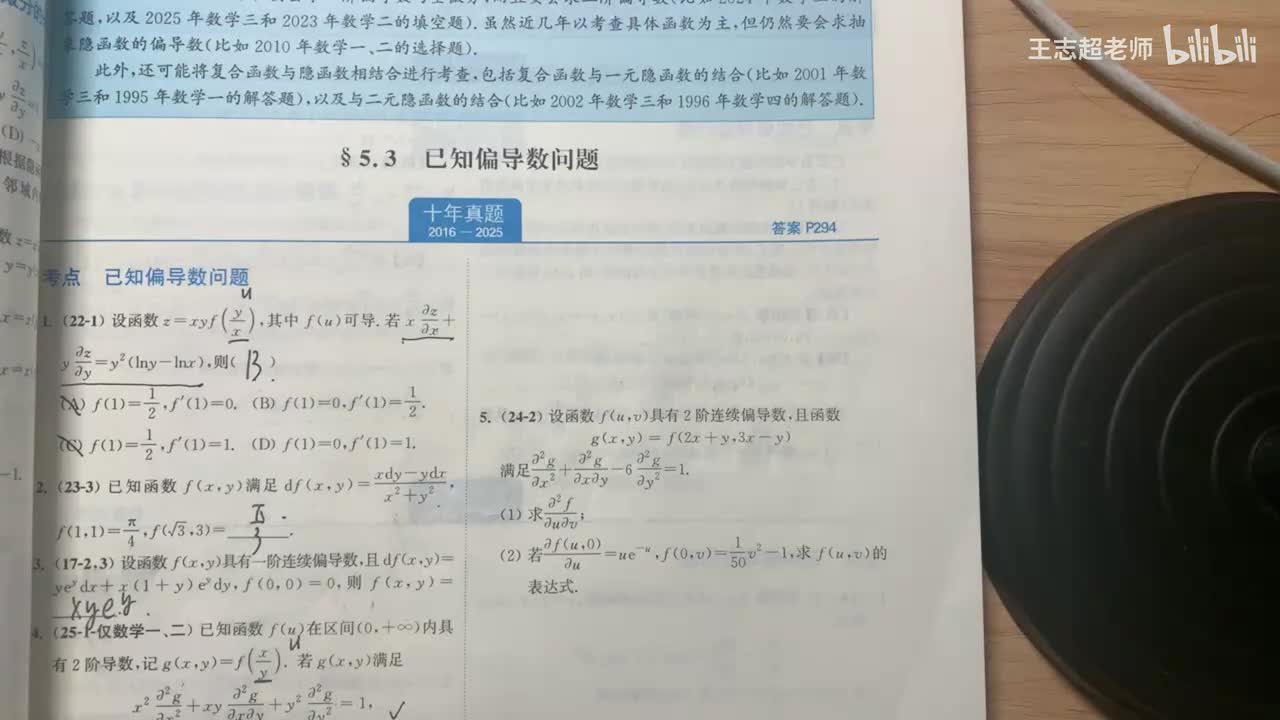 王志超老师 bilibili
答题,以及 2025 年数学三和 2023 年数学二的填空题). 虽然近几年以考查具体函数为主,但仍然要会求抽
象隐函数的偏导数(比如 2010 年数学一、二的选择题).
此外,还可能将复合函数与隐函数相结合进行考查,包括复合函数与一元隐函数的结合(比如 2001 年数
学三和 1995 年数学一的解答题),以及与二元隐函数的结合(比如 2002 年数学三和 1996 年数学四的解答题).
§ 5.3 已知偏导数问题
十年真题
2016 — 2025
答案 P294
考点 已知偏导数问题
u
1. (22-1) 设函数 z=xyf(y/x),其中 f(u)可导. 若 x ∂z/∂x +
y ∂z/∂y=y²(lny−lnx),则( B )
(A) f(1)=1/2,f′(1)=0. (B) f(1)=0,f′(1)=1/2.
(C) f(1)=1/2,f′(1)=1. (D) f(1)=0,f′(1)=1.
2. (23-3) 已知函数 f(x,y)满足 df(x,y)=(xdy−ydx)/(x²+y²),
f(1,1)=π/4,f(√3,3)= π/3 .
3. (17-2,3) 设函数 f(x,y)具有一阶连续偏导数,且 df(x,y)=
yeʸdx+x(1+y)eʸdy,f(0,0)=0,则 f(x,y)=
xyeʸ.
4. (25-1-仅数学一、二) 已知函数 f(u)在区间(0,+∞)内具
有 2 阶导数,记 g(x,y)=f(x/y). 若 g(x,y)满足
u
x² ∂²g/∂x²+xy ∂²g/∂x∂y+y² ∂²g/∂y²=1, ✓
5. (24-2) 设函数 f(u,v)具有 2 阶连续偏导数,且函数
g(x,y)=f(2x+y,3x−y)
满足∂²g/∂x²+∂²g/∂x∂y−6 ∂²g/∂y²=1.
(1) 求∂²f/∂u∂v;
(2) 若∂f(u,0)/∂u=ue⁻ᵘ,f(0,v)=1/50 v²−1,求 f(u,v)的
表达式.